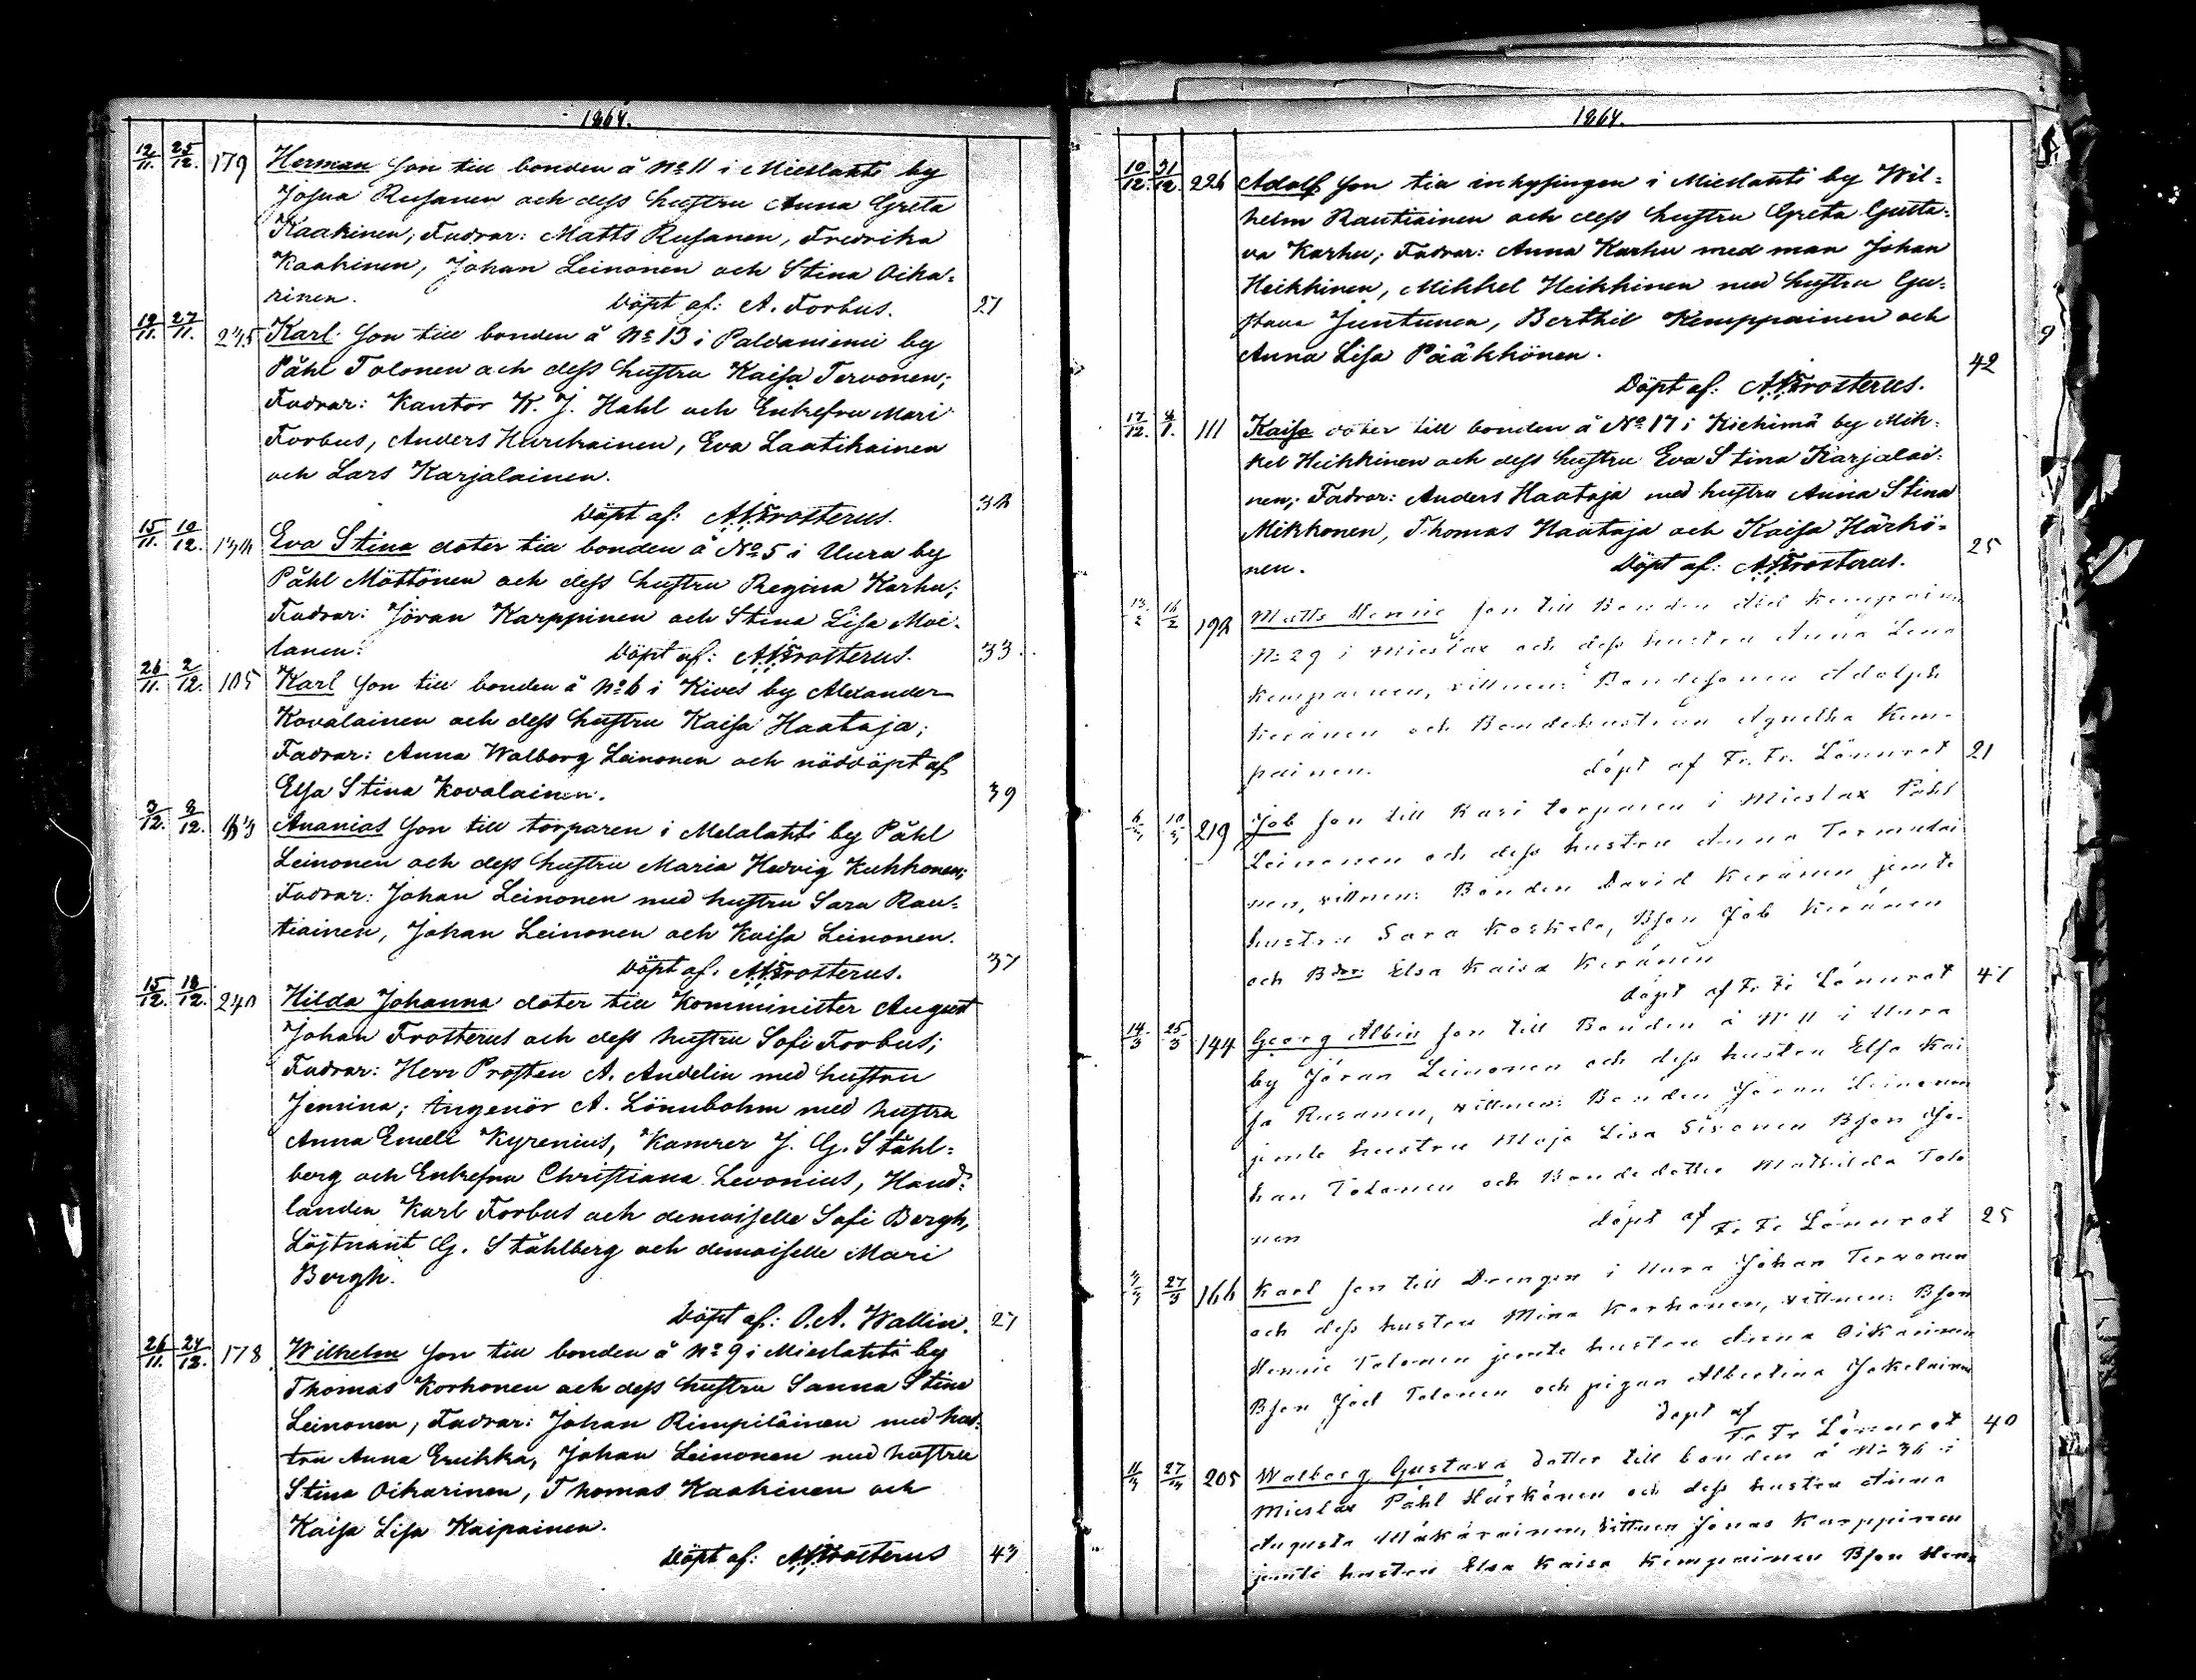 1864.
12/11. 25/12. 179 Herman son till bonden å No 11 i Mieslahti by
Josua Rusanen och dess hustru Anna Greta
Kaakinen; Fadrar: Matts Rusanen, Fredrika
Kaakinen, Johan Leinonen och Stina Oika-
rinen. Döpt af: A. Forbus. 27
12/11. 27/11. 245 Karl son till bonden å No 13 i Paldaniemi by
Påhl Tolonen och dess hustru Kaisa Tervonen;
Fadrar: Kantor K. J. Hahl och Enkefru Mari
Forbus, Anders Hurskainen, Eva Laatikainen
och Lars Karjalainen.
Döpt af: A.J.Frosterus. 32
15/11. 10/12. 134 Eva Stina doter till bonden å No 5 i Uura by
Påhl Möttönen och dess hustru Regina Karhu;
Fadrar: Jöran Karppinen och Stina Lisa Moi-
lanen. Döpt af: A.J.Frosterus. 33
26/11. 2/12. 105 Karl son till bonden å No 6 i Kives by Alexander
Kovalainen och dess hustru Kaisa Haataja;
Fadrar: Anna Walborg Leinonen och nöddöpt af
Elsa Stina Kovalainen. 39
3/12. 8/12. Ananias son till torparen i Melalahti by Påhl
Leinonen och dess hustru Maria Hedvig Kukkonen;
Fadrar: Johan Leinonen med hustru Sara Rau-
tiainen, Johan Leinonen och Kaisa Leinonen.
Döpt af: A.J.Frosterus. 37
15/12. 18/12. 240 Hilda Johanna doter till Komminister August
Johan Frosterus och dess hustru Sofi Forbus;
Fadrar: Herr Prosten A. Andelin med hustru
Jemina; Ingenör A. Lönnbohm med hustru
Anna Emeli Kyrenius, Kamrer J. G. Ståhl-
berg och Enkefru Christiana Levonius, Hand-
landen Karl Forbus och demoiselle Sofi Bergh,
Löjtnant G. Ståhlberg och demoiselle Mari
Bergh.
Döpt af: O.A. Wallin. 27
26/11. 24/12. 178 Wilhelm son till bonden å No 9 i Mieslahti by
Thomas Korhonen och dess hustru Sanna Stina
Leinonen; Fadrar: Johan Rimpiläinen med hus-
tru Anna Erikka, Johan Leinonen med hustru
Stina Oikarinen, Thomas Kaakinen och
Kaisa Lisa Kaipainen.
Döpt af: A.J.Frosterus 43
1864.
10/12. 31/12. 226 Adolf son till inhysingen i Mieslahti by Wil-
helm Rautiainen och dess hustru Greta Gusta-
va Karhu; Fadrar: Anna Karhu med man Johan
Heikkinen, Mikkel Heikkinen med hustru Gu-
stava Juntunen, Berthil Kemppainen och
Anna Lisa Pääkkönen. 42
Döpt af: A.J.Frosterus.
17/12. 8/1. 111 Kaisa doter till bonden å No 17 i Kiehimä by Mik-
kel Heikkinen och dess hustru Eva Stina Karjalai-
nen; Fadrar: Anders Haataja med hustru Anna Stina
Mikkonen, Thomas Haataja och Kaisa Härkö-
nen. Döpt af: A.J.Frosterus. 25
13/2 16/2 192 Matts Henric son till Bonden Abel Kempainen
No 29 i Mieslax och dess hustru Anna Lena
Kempainen, vittnen: Bondesonen Adolph
Keränen och Bondehustrun Agnetha Kem-
painen. döpt af Fr. Fr. Lönnrot 21
219 Job son till Kasitorparen i Mieslax Påhl
Leinonen och dess hustru Anna
nen, vittnen: Bonden David Keränen jemte
hustru Sara Koskelo, Bson Job Keränen
och Bdr: Elsa Kaisa Keränen
döpt af Fr. Fr. Lönnrot 47
14/3 25/3 144 Georg Albin son till Bonden å N 11 i Uura
by Jöran Leinonen och dess hustru Elsa Kai
sa Rusanen, vittnen: Bonden Jöran Leinonen
jemte hustru Maja Lisa Sivonen Bson Jo-
han Tolonen och Bondedotter Mathilda Tolo
nen döpt af Fr. Fr. Lönnrot 25
27/3 166 Karl son till Drengen i Uura Johan Tervonen
och dess hustru Mina Korhonen, vittnen: Bson
Henric Tolonen jemte hustru Anna Oikarinen
Bson Joel Tolonen och pigan Albertina Jokelainen
döpt af
Fr. Fr. Lönnrot 40
205 Walborg Gustava dotter till bonden å No 36 i
Mieslax Påhl Härkönen och dess hustru Anna
Augusta Mäkäräinen, Vittnen Jonas Karppinen
jemte hustru Elsa Kaisa Kempainen Bson Hen